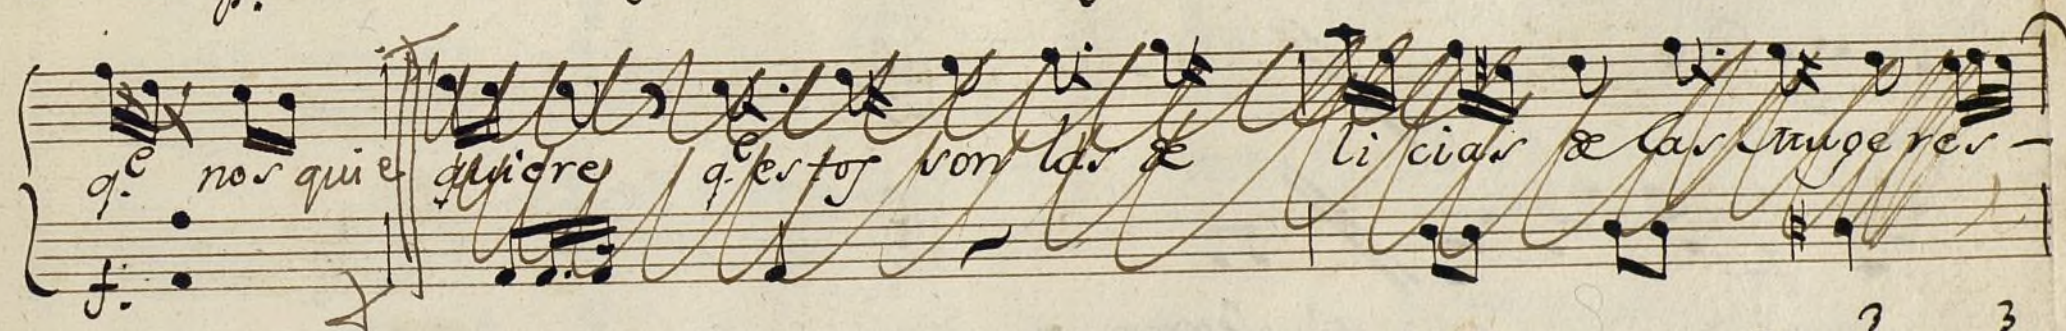 q.e nos quie quiere q.e estos son las de li cias de las mugeres -
f:
3 3